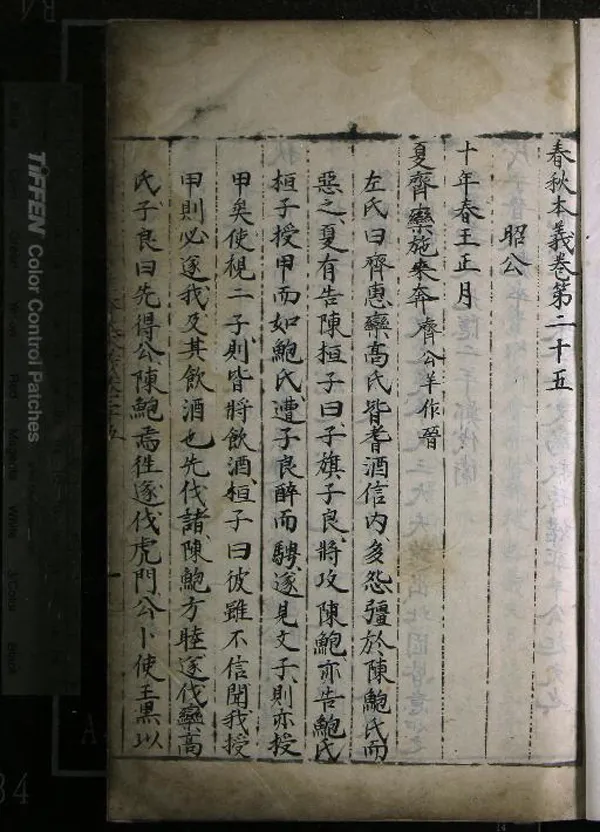 春秋本義卷第二十五
昭公
十年春王正月
夏齊欒施來奔 齊公羊作晉
左氏曰齊惠欒高氏皆耆酒信內多怨彊於陳鮑氏而
惡之夏有告陳桓子曰子旗子良將攻陳鮑亦告鮑氏
桓子授甲而如鮑氏遭子良醉而騁遂見文子則亦授
甲矣使視二子則皆將飲酒桓子曰彼雖不信聞我授
甲則必逐我及其飲酒也先伐諸陳鮑方睦遂伐欒高
氏子良曰先得公陳鮑焉往遂伐虎門公卜使王黑以
TIFFEN Color Control Patches